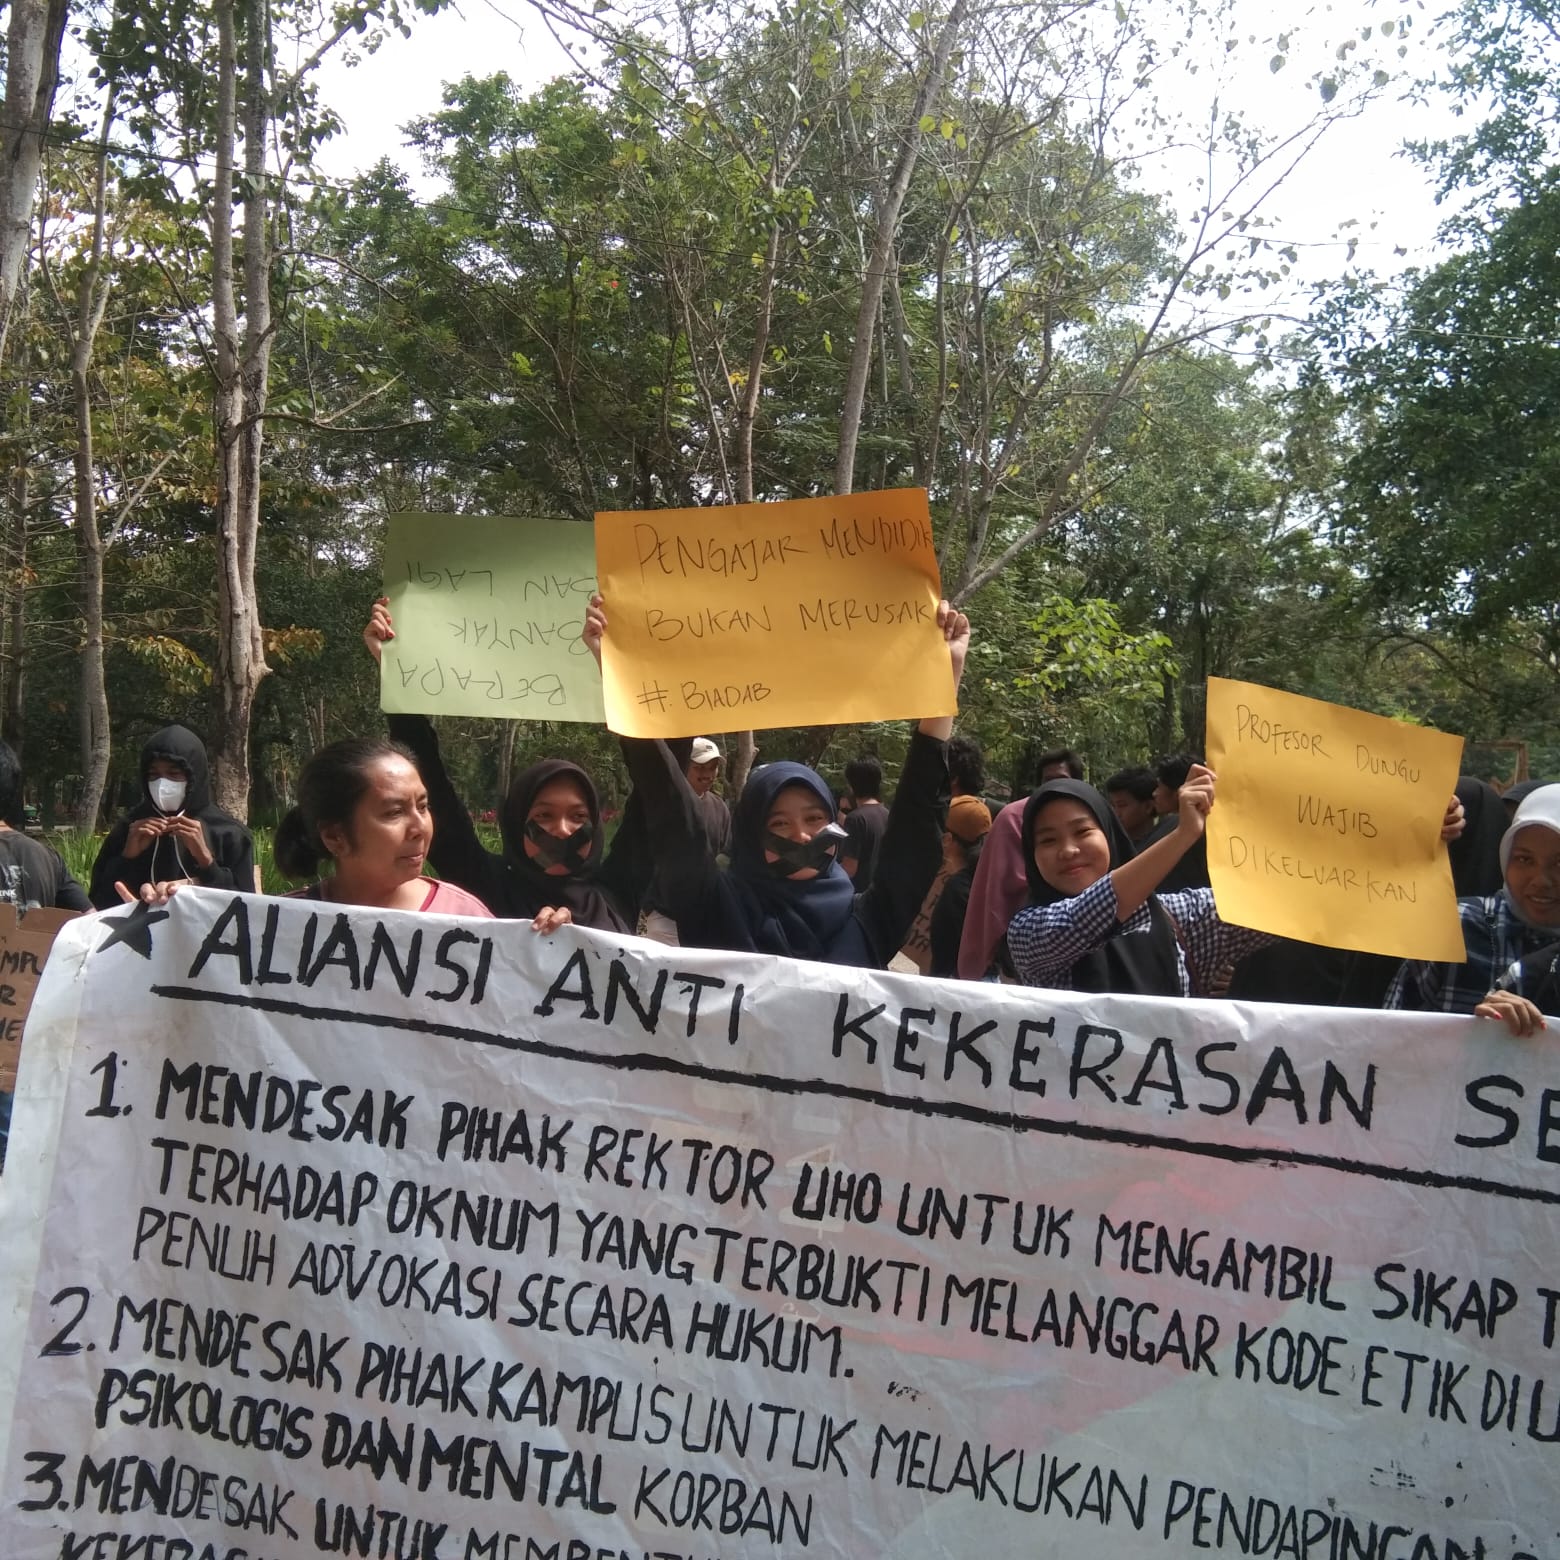 BERAPA
BANYAK
DAN LAGI
PENGAJAR MENDIDIK
BUKAN MERUSAK
# BIADAB
PROFESOR DUNGU
WAJIB
DIKELUARKAN
ALIANSI ANTI KEKERASAN SE
1. MENDESAK PIHAK REKTOR UHO UNTUK MENGAMBIL SIKAP T
TERHADAP OKNUM YANG TERBUKTI MELANGGAR KODE ETIK DI U
PENUH ADVOKASI SECARA HUKUM.
2. MENDESAK PIHAK KAMPUS UNTUK MELAKUKAN PENDAPINGAN
PSIKOLOGIS DAN MENTAL KORBAN
3. MENDESAK UNTUK MEMBENTU